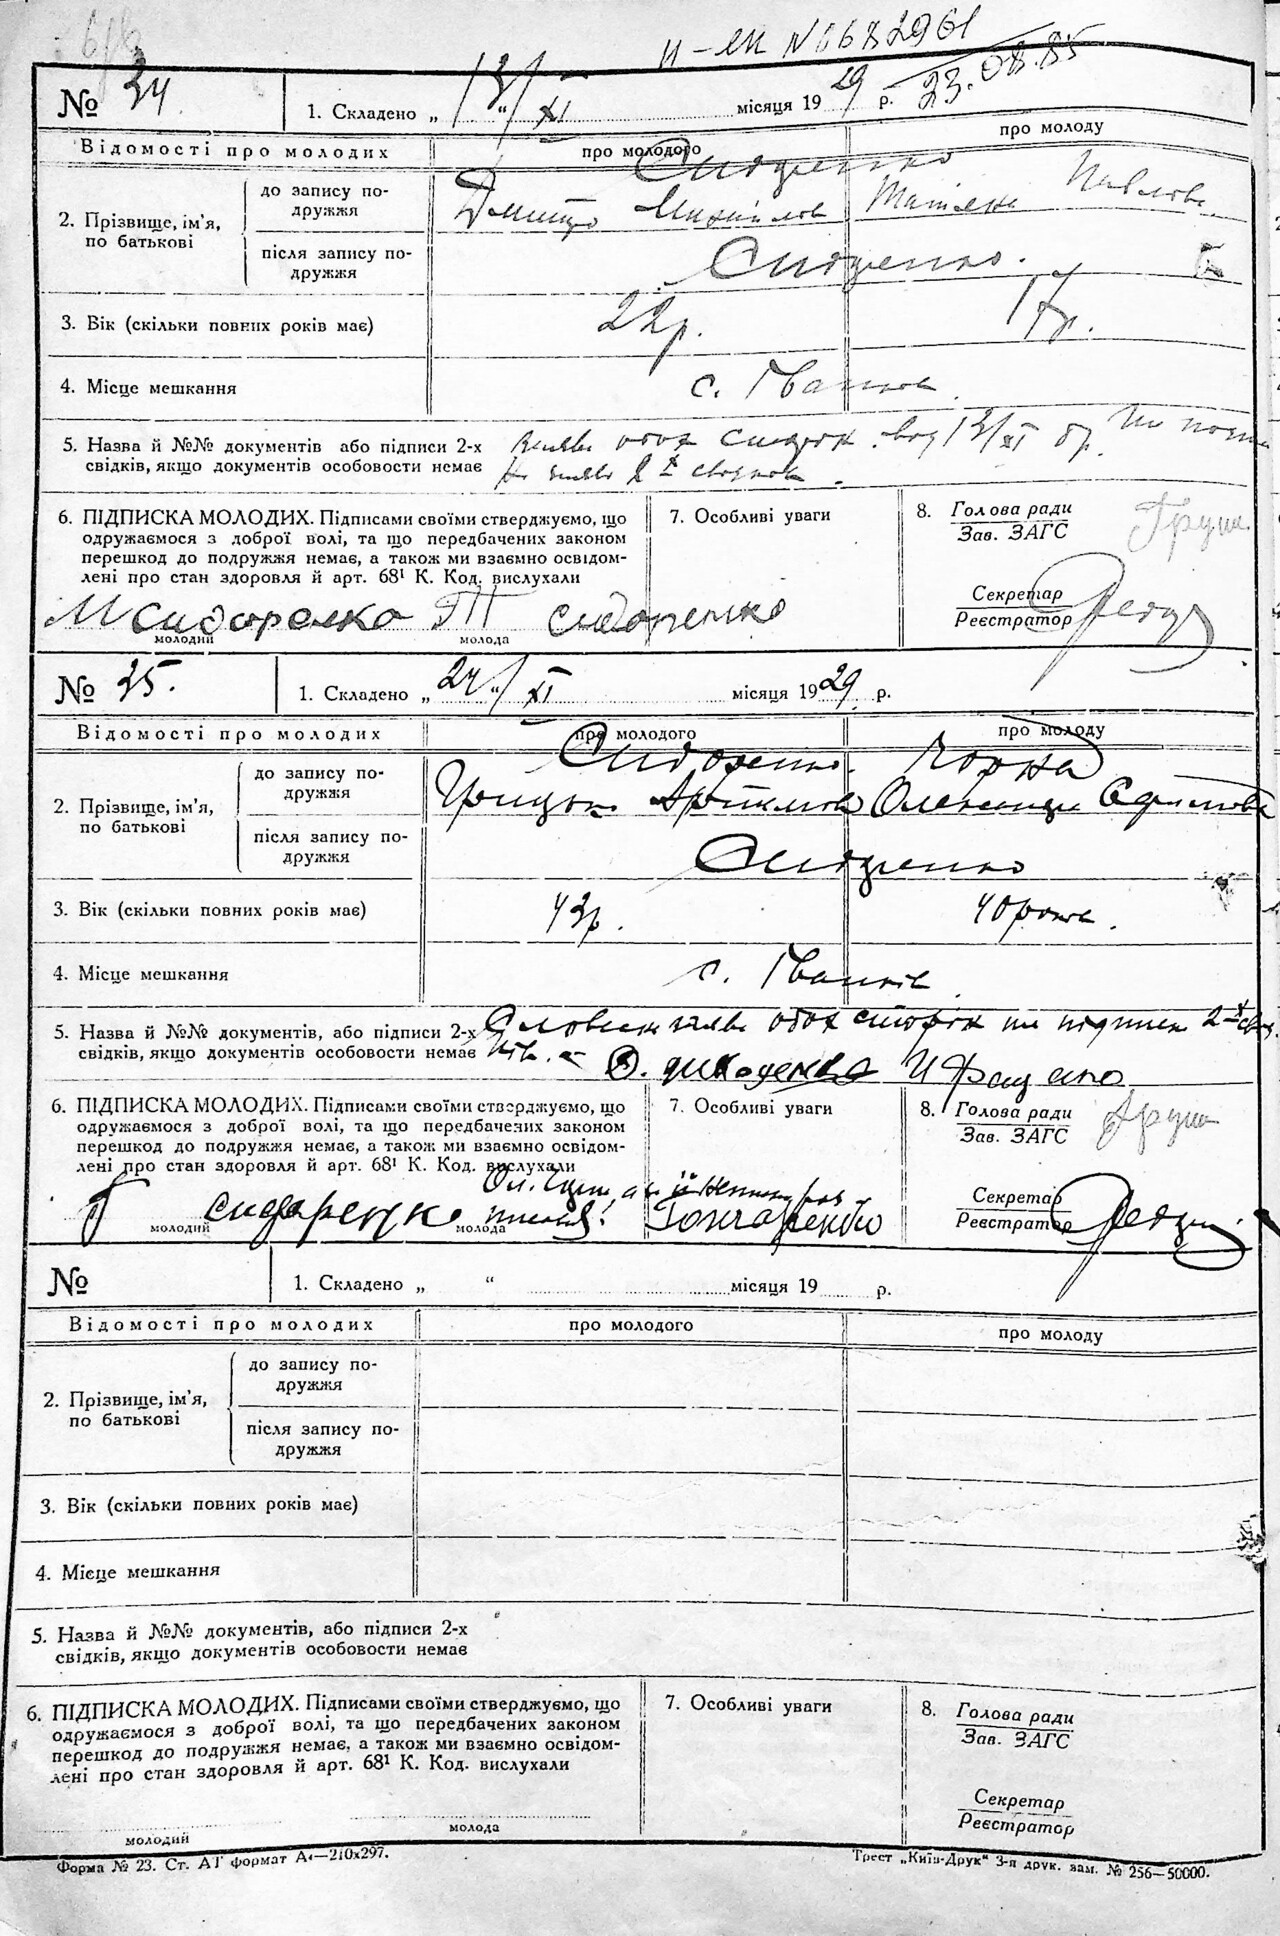 № 34. 1. Складено „13/“ XI місяця 1929 р. 23.08.85
Відомості про молодих про молодого про молоду
Сидоренко
2. Прізвище, ім'я, по батькові
до запису подружжя Дмитро Михайлов Павлова
після запису подружжя Сидоренко.
3. Вік (скільки повних років має) 22р. 17р.
4. Місце мешкання с. Іванків
5. Назва й №№ документів або підписи 2-х
свідків, якщо документів особовости немає
обох сторін від 13/XI
6. ПІДПИСКА МОЛОДИХ. Підписами своїми стверджуємо, що
одружаємося з доброї волі, та що передбачених законом
перешкод до подружжя немає, а також ми взаємно освідом-
лені про стан здоровля й арт. 68¹ К. Код. вислухали
М Сидоренко Т Сидоренко
молодий молода
7. Особливі уваги
8. Голова ради
Зав. ЗАГС
Секретар
Реєстратор
№ 35. 1. Складено „24/“ XI місяця 1929 р.
Відомості про молодих про молодого про молоду
Сидоренко. Чорна
2. Прізвище, ім'я, по батькові
до запису подружжя Грицько Артимов Олександра Єфимова
після запису подружжя Сидоренко
3. Вік (скільки повних років має) 43р. 40 рокв.
4. Місце мешкання с. Іванків
5. Назва й №№ документів, або підписи 2-х
свідків, якщо документів особовости немає
Словесн заява обох сторін 2-х
6. ПІДПИСКА МОЛОДИХ. Підписами своїми стверджуємо, що
одружаємося з доброї волі, та що передбачених законом
перешкод до подружжя немає, а також ми взаємно освідом-
лені про стан здоровля й арт. 68¹ К. Код. вислухали
Г Сидаренко Гончаренко
молодий молода
7. Особливі уваги
8. Голова ради
Зав. ЗАГС
Секретар
Реєстратор
№ 1. Складено „ “ місяця 19 р.
Відомості про молодих про молодого про молоду
2. Прізвище, ім'я, по батькові
до запису подружжя
після запису подружжя
3. Вік (скільки повних років має)
4. Місце мешкання
5. Назва й №№ документів, або підписи 2-х
свідків, якщо документів особовости немає
6. ПІДПИСКА МОЛОДИХ. Підписами своїми стверджуємо, що
одружаємося з доброї волі, та що передбачених законом
перешкод до подружжя немає, а також ми взаємно освідом-
лені про стан здоровля й арт. 68¹ К. Код. вислухали
молодий молода
7. Особливі уваги
8. Голова ради
Зав. ЗАГС
Секретар
Реєстратор
Форма № 23. Ст. А1 формат А4—210х297. Трест „Київ-Друк“ 3-я друк. зам. № 256—50000.